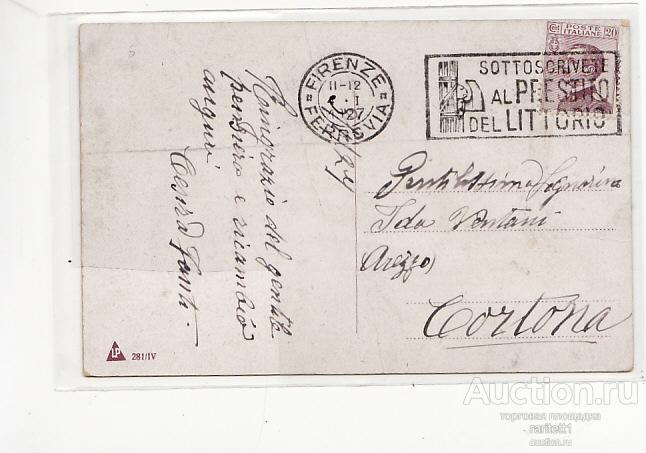 5
POSTE
ITALIANE
Cmi 20
FIRENZE
11-12
I
27
FERROVIA
SOTTOSCRIVETE
AL PRESTITO
DEL LITTORIO
Ringrazio del gentil
pensiero e ricambio
auguri
Fanti.
Gentilissima Signorina
Ida
Arezzo
Cortona
LP 281/IV
Auction.ru
торговая площадка
raritett1
auction.ru